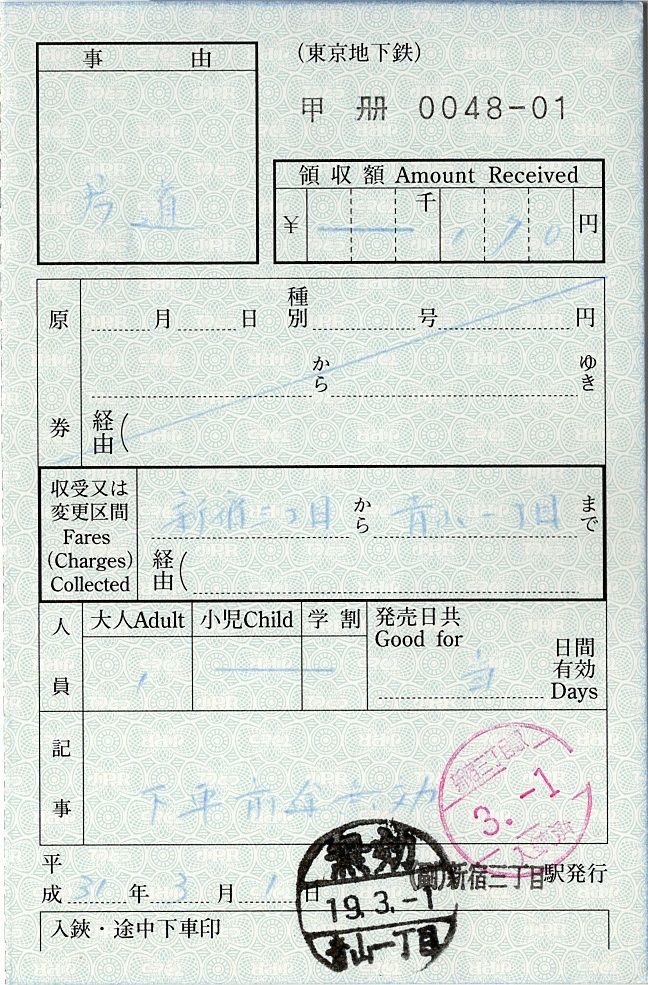 (東京地下鉄)
事 由
甲 冊 0048-01
片道
領収額 Amount Received
千
¥ 170 円
原券
月 日 種別 号 円
から ゆき
経由(
収受又は
変更区間
Fares
(Charges)
Collected
新宿三丁目 から 青山一丁目 まで
経由(
人員
大人Adult 小児Child 学割 発売日共
Good for
1 当 日間
有効
Days
記事
下車前途無効
新宿三丁目駅
3.-1
入鋏済
平成 31 年 3 月 1 日 (副)新宿三丁目駅発行
無効
19.3.-1
青山一丁目
入鋏・途中下車印